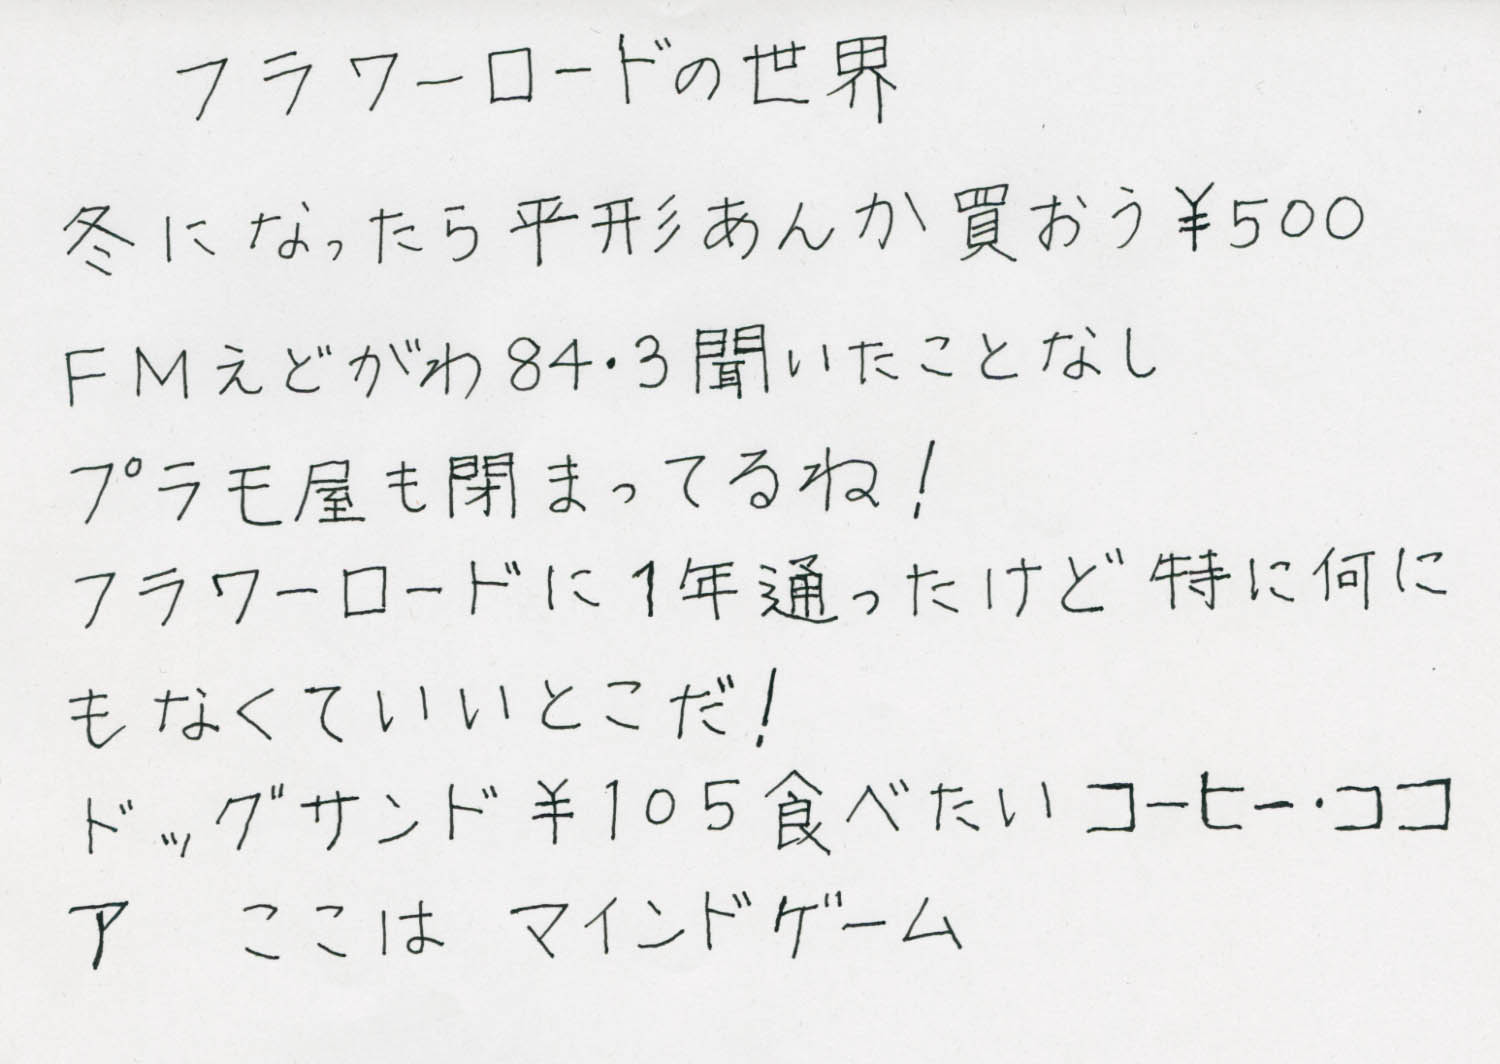 フラワーロードの世界
冬になったら平形あんか買おう¥500
FMえどがわ84・3聞いたことなし
プラモ屋も閉まってるね!
フラワーロードに1年通ったけど特に何に
もなくていいとこだ!
ドッグサンド¥105食べたいコーヒー・ココ
ア ここは マインドゲーム